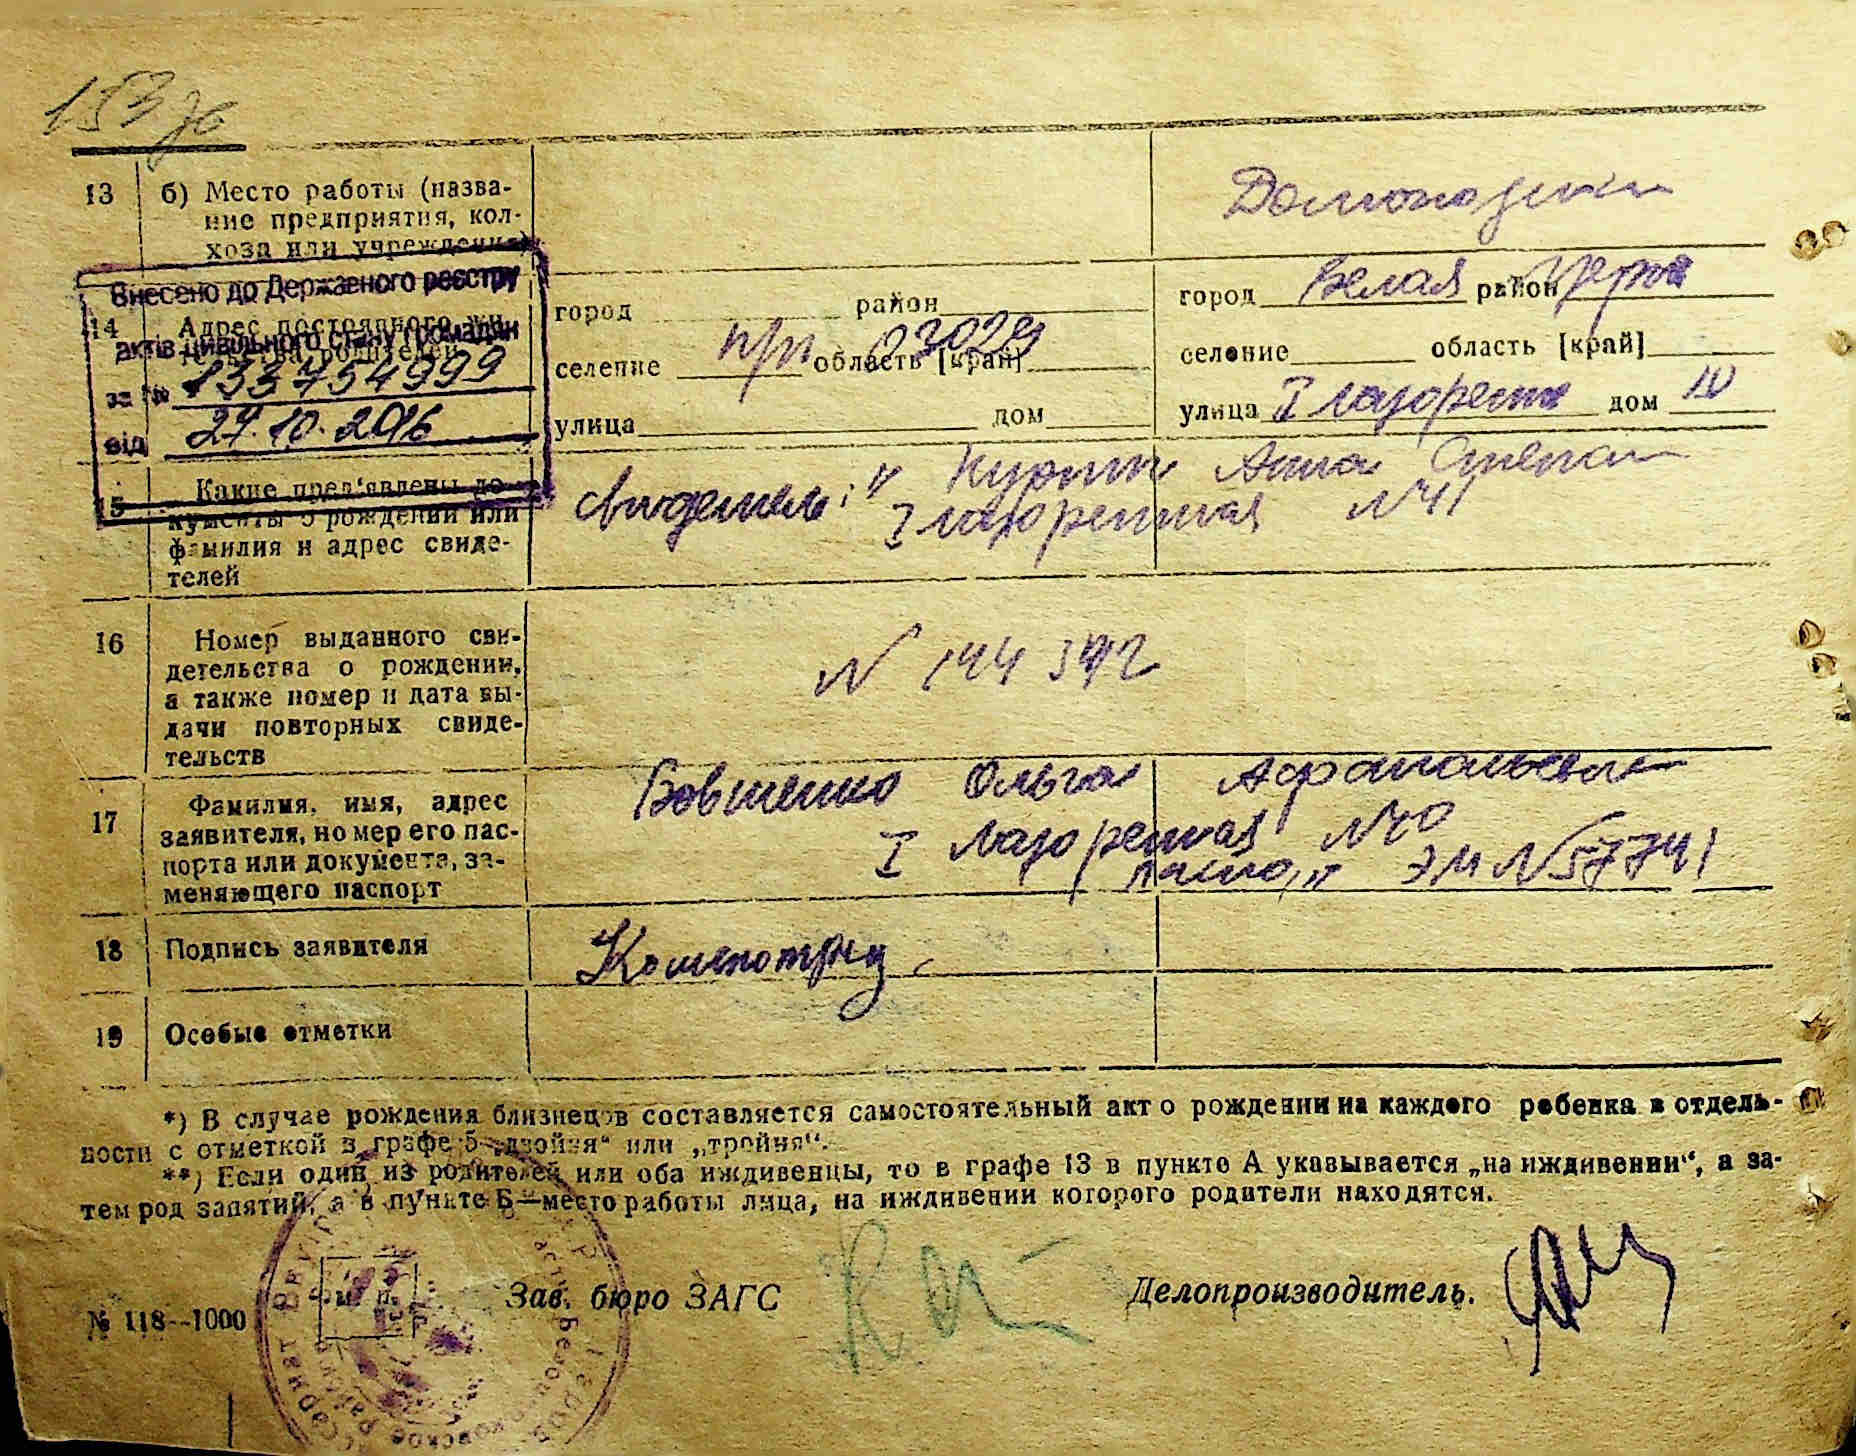 153
13 б) Место работы (назва-
ние предприятия, кол-
хоза или учреждения)
Внесено до Державного реєстру
актів цивільного стану громадян
за № 133754999
від 27.10.2016
14 Адрес постоянного жи-
тельства родителей
город район
селение п/п 03029 область [край]
улица дом
город Белая район Церк
селение область [край]
улица I Лазоретн дом 10
15 Какие пред'явлены до-
кументы о рождении или
фамилия и адрес свиде-
телей
Свидетель: Анна Степан
I Лазоретная №41
16 Номер выданного сви-
детельства о рождении,
а также номер и дата вы-
дачи повторных свиде-
тельств
N 144 342
17 Фамилия, имя, адрес
заявителя, номер его пас-
порта или документа, за-
меняющего паспорт
Ольга
I Лазоретная №10
паспорт ЭМ №57741
18 Подпись заявителя
19 Особые отметки
*) В случае рождения близнецов составляется самостоятельный акт о рождении на каждого ребенка в отдель-
ности с отметкой в графе 5 „двойня“ или „тройня“.
**) Если один из родителей или оба иждивенцы, то в графе 13 в пункте А указывается „на иждивении“, а за-
тем род занятий, а в пункте Б—место работы лица, на иждивении которого родители находятся.
Зав. бюро ЗАГС
Делопроизводитель.
№ 118--1000